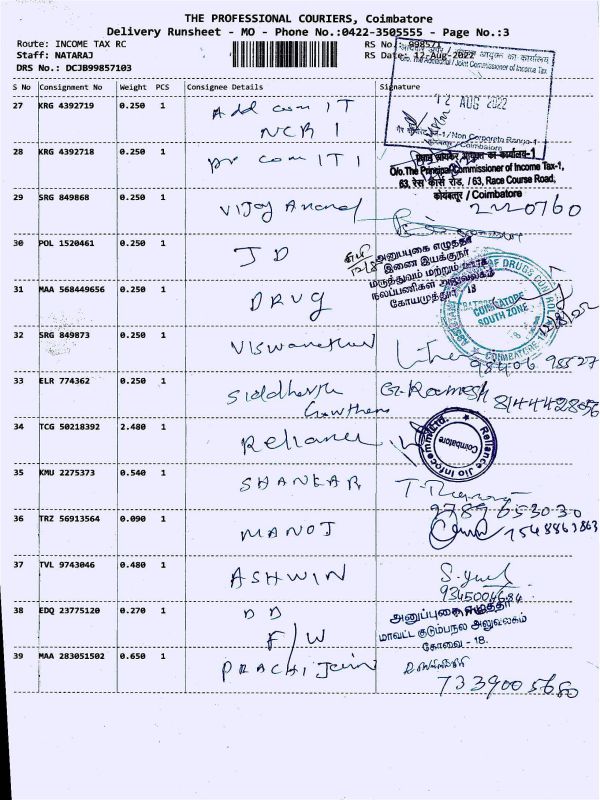 THE PROFESSIONAL COURIERS, Coimbatore
Delivery Runsheet - MO - Phone No.:0422-3505555 - Page No.:3
Route: INCOME TAX RC
RS No.: 998571
Staff: NATARAJ
RS Date: 12-Aug-2022
DRS No.: DCJB99857103
S No Consignment No Weight PCS Consignee Details Signature
O/o. The Additional / Joint Commissioner of Income Tax
12 AUG 2022
-1/Non Corporate Range-1
/Coimbatore
27 KRG 4392719 0.250 1 Add com IT
NCR 1
28 KRG 4392718 0.250 1 pr com IT 1
O/o.The Principal Commissioner of Income Tax-1,
63, रेस कोर्स रोड, / 63, Race Course Road,
कोयंबत्तूर / Coimbatore
29 SRG 849868 0.250 1 Vijay Anand
2220760
30 POL 1520461 0.250 1 JD
அனுப்புகை எழுத்தர்
இணை இயக்குநர்
மருத்துவம் மற்றும்
நலப்பணிகள் அலுவலகம்
கோயமுத்தூர் 18
31 MAA 568449656 0.250 1 DRUG
COIMBATORE
SOUTH ZONE
32 SRG 849873 0.250 1 Viswanathan
98406 95527
33 ELR 774362 0.250 1 Siddharth
Gowthem
G. Ramesh
8144428056
34 TCG 50218392 2.480 1 Reliance
Reliance Jio Infocomm Ltd.
Coimbatore
35 KMU 2275373 0.540 1 SHANKAR
9789653030
36 TRZ 56913564 0.090 1 MANOJ
7548863863
37 TVL 9743046 0.480 1 ASHWIN
9345004684
38 EDQ 23775120 0.270 1 DD
F/W
அனுப்புகை எழுத்தர்
மாவட்ட குடும்பநல அலுவலகம்
கோவை - 18.
39 MAA 283051502 0.650 1 PRACHI Jain
7339005680